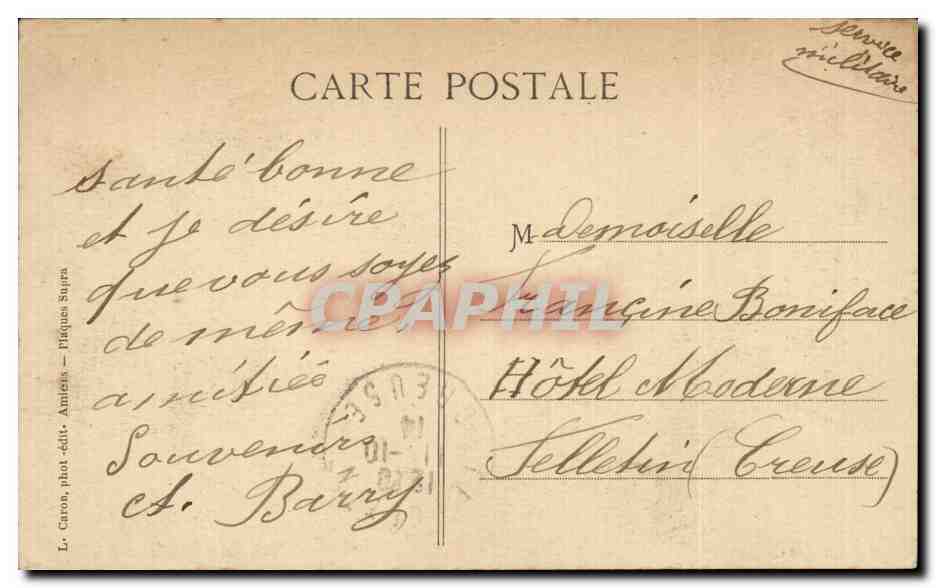 service
militaire
CARTE POSTALE
santé bonne
et je désire
que vous soyez
de même
amitiés
Souvenirs
A. Barry
Mademoiselle
Françine Boniface
Hôtel Moderne
Felletin (Creuse)
L. Caron, phot-édit- Amiens — Plaques Supra
CPAPHIL
CREUSE
14
-10